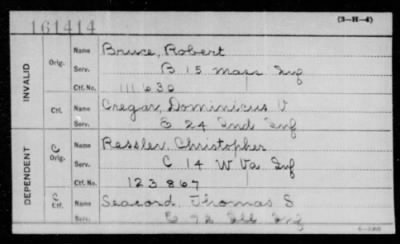 161414
(3-H-4)
INVALID
Orig.
Name Bruce, Robert
Serv. B 15 Mass Inf
Ctf. No. 111636
Ctf.
Name Cregar, Dominicus V
Serv. E 24 Ind Inf
DEPENDENT
C
Orig.
Name Ressler, Christopher
Serv. C 14 W Va Inf
Ctf. No. 123867
C
Ctf.
Name Seacord, Thomas S
Serv. Ill Inf